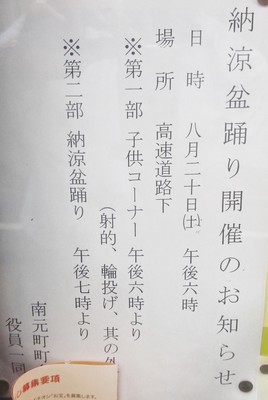 納涼盆踊り開催のお知らせ
日時 八月二十日(土) 午後六時
場所 高速道路下
※第一部 子供コーナー 午後六時より
(射的、輪投げ、其の外
※第二部 納涼盆踊り 午後七時より
南元町町
役員一同
募集要項